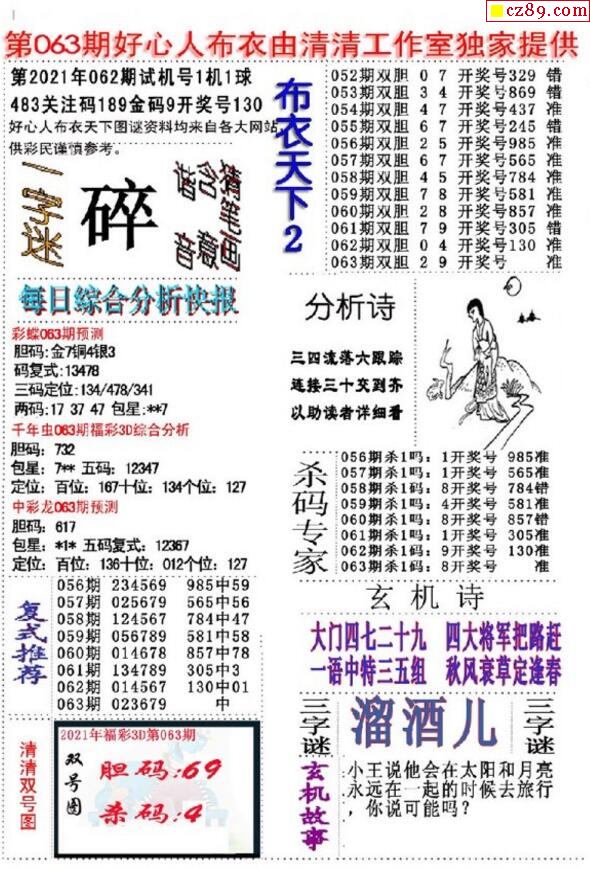 cz89.com
第063期好心人布衣由清清工作室独家提供
第2021年062期试机号1机1球
483关注码189金码9开奖号130
好心人布衣天下图谜资料均来自各大网站
供彩民谨慎参考。
一字迷
碎
猜笔画
含意
谐音
每日综合分析快报
彩蝶063期预测
胆码:金7铜4银3
码复式:13478
三码定位:134/478/341
两码:17 37 47 包星:**7
千年虫063期福彩3D综合分析
胆码: 732
包星: 7** 五码: 12347
定位: 百位: 167十位: 134个位: 127
中彩龙063期预测
胆码: 617
包星: *1* 五码复式: 12367
定位: 百位: 136十位: 012个位: 127
复式推荐
056期 234569 985中59
057期 025679 565中56
058期 124567 784中47
059期 056789 581中58
060期 014678 857中78
061期 134789 305中3
062期 014567 130中01
063期 023679 中
清清双号图
2021年福彩3D第063期
双号图
胆码:69
杀码:4
布衣天下2
052期双胆 0 7 开奖号329 错
053期双胆 3 4 开奖号869 错
054期双胆 4 7 开奖号437 准
055期双胆 6 7 开奖号245 错
056期双胆 2 5 开奖号985 准
057期双胆 6 7 开奖号565 准
058期双胆 4 5 开奖号784 准
059期双胆 7 8 开奖号581 准
060期双胆 2 8 开奖号857 准
061期双胆 7 9 开奖号305 错
062期双胆 0 4 开奖号130 准
063期双胆 2 9 开奖号 准
分析诗
三四流落六跟踪
连接三十交到齐
以助读者详细看
杀码专家
056期杀1吗: 1开奖号 985准
057期杀1吗: 1开奖号 565准
058期杀1码: 8开奖号 784错
059期杀1码: 4开奖号 581准
060期杀1吗: 8开奖号 857错
061期杀1吗: 1开奖号 305准
062期杀1码: 9开奖号 130准
063期杀1码: 8开奖号 准
玄机诗
大门四七二十九 四大将军把路赶
一语中特三五组 秋风衰草定逢春
三字谜
溜酒儿
三字谜
玄机故事
小王说他会在太阳和月亮
永远在一起的时候去旅行
，你说可能吗？